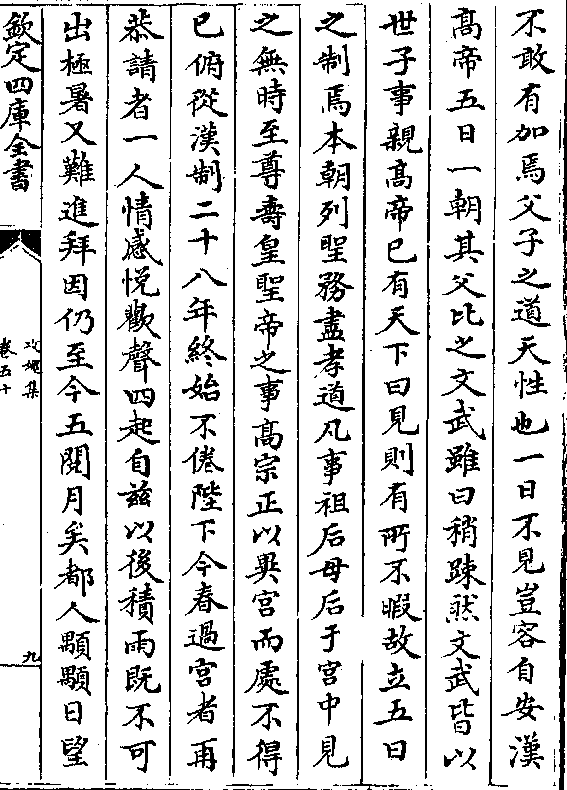 不敢有加焉父子之道天性也一日不見豈容自安漢
髙帝五日一朝其父比之文武雖曰稍踈然文武皆以
世子事親髙帝已有天下曰見則有所不暇故立五日
之制焉本朝列聖務盡孝道凡事祖后母后于宫中見
之無時至尊壽皇聖帝之事髙宗正以異宫而處不得
已俯從漢制二十八年終始不倦陛下今春過宫者再
恭請者一人情感悦歡聲四起自兹以後積雨既不可
出極暑又難進拜因仍至今五閲月矣都人顒顒日望
欽定四庫全書
攻媿集
卷五十
九